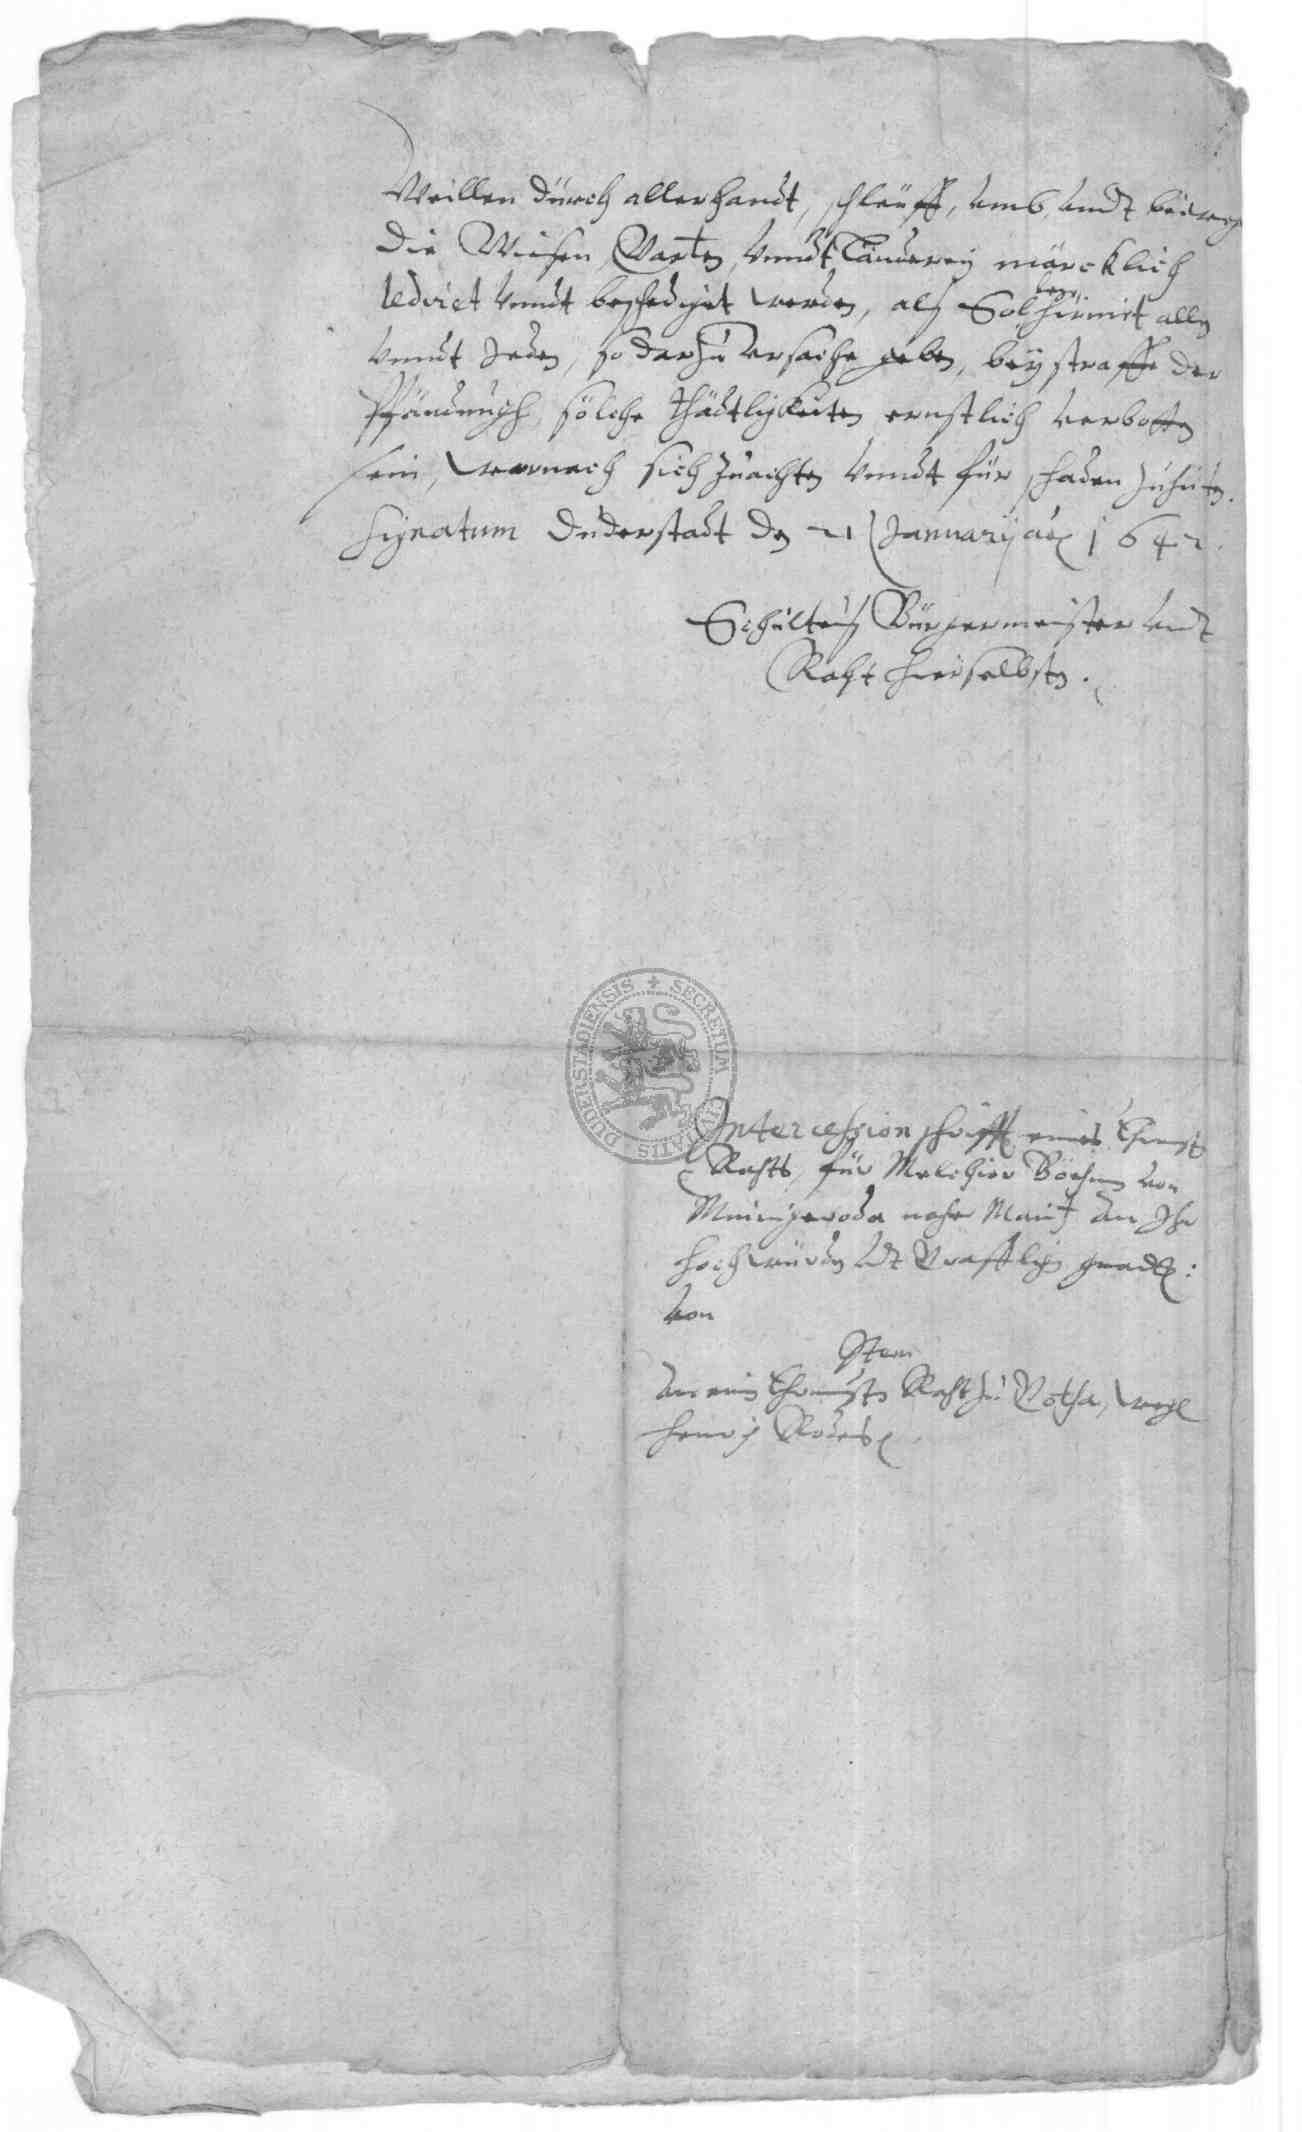 Weillen durch allerhandt, schleuff, umb undt beiwege
die Wiesen, Garten, unndt Länderey märcklich
unndt beschediget werden, als soll hiemit allen
unndt Jeden, so darzu ursache geben, bey straffe der
Pfändungh, solche thädtligkeiten ernstlich verbotten
sein, warnach sich zuachten unndt für schaden zuhüten.
Signatum Duderstadt den 21 Januarij ao 1642.
Schulteiß Bürgermeister undt
Raht hierselbsten.
SECRETUM CIVITATIS DUDERSTADIENSIS
Intercession schrifft eines Ehrnvst
Rahts, für Melchior von
Mningeroda nacher Maintz an Ihr
hochwürden undt Gräffliche gnad:
von
Item
an ein Ehrnvesten Raht zu Gotha, wegen
Henrich